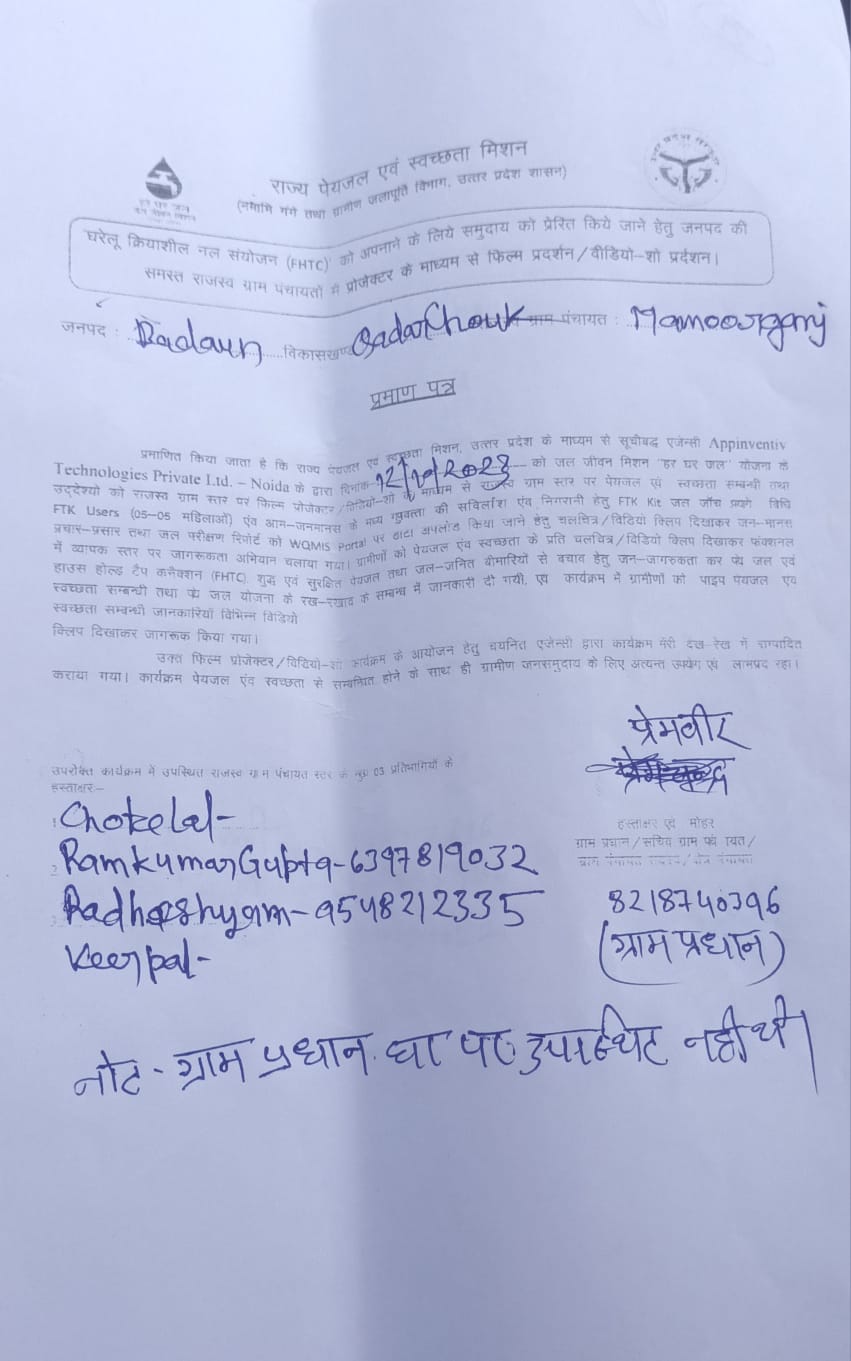 राज्य पेयजल एवं स्वच्छता मिशन
(नमामि गंगे तथा ग्रामीण जलापूर्ति विभाग, उत्तर प्रदेश शासन)
घरेलू क्रियाशील नल संयोजन (FHTC)' को अपनाने के लिये समुदाय को प्रेरित किये जाने हेतु जनपद की
समस्त राजस्व ग्राम पंचायतों में प्रोजेक्टर के माध्यम से फिल्म प्रदर्शन/वीडियो-शो प्रर्दशन।
जनपद : Badaun विकासखण्ड QadarChouk ग्राम पंचायत : Mamoorganj
प्रमाण पत्र
प्रमाणित किया जाता है कि राज्य पेयजल एवं स्वच्छता मिशन, उत्तर प्रदेश के माध्यम से सूचीबद्ध एजेन्सी Appinventiv
Technologies Private Ltd. – Noida के द्वारा दिनांक 12/10/2023 को जल जीवन मिशन "हर घर जल" योजना के
उद्देश्यो को राजस्व ग्राम स्तर पर फिल्म प्रोजेक्टर/विडियो-शो के माध्यम से राजस्व ग्राम स्तर पर पेयजल एवं स्वच्छता सम्बन्धी तथा
FTK Users (05-05 महिलाओं) एंव आम-जनमानस के मध्य गुणवत्ता की सर्विलांश एंव निगरानी हेतु FTK Kit जल जाँच विधि
प्रचार-प्रसार तथा जल परीक्षण रिपोर्ट को WQMIS Portal पर डाटा अपलोड किया जाने हेतु चलचित्र/विडियो क्लिप दिखाकर जन-मानस
में व्यापक स्तर पर जागरूकता अभियान चलाया गया। ग्रामीणों को पेयजल एंव स्वच्छता के प्रति चलचित्र/विडियो क्लिप दिखाकर फंक्शनल
हाउस होल्ड टैप कनैक्शन (FHTC) शुद्ध एवं सुरक्षित पेयजल तथा जल-जनित बीमारियों से बचाव हेतु जन-जागरूकता कर पेय जल एवं
स्वच्छता सम्बन्धी तथा पेय जल योजना के रख-रखाव के सम्बन्ध में जानकारी दी गयी, एव कार्यक्रम में ग्रामीणों को पाइप पेयजल एव
स्वच्छता सम्बन्धी जानकारियाँ विभिन्न विडियो
क्लिप दिखाकर जागरूक किया गया।
उक्त फिल्म प्रोजेक्टर/विडियो-शो कार्यक्रम के आयोजन हेतु चयनित एजेन्सी द्वारा कार्यक्रम मेरी देख-रेख में सम्पादित
कराया गया। कार्यक्रम पेयजल एंव स्वच्छता से सम्बन्धित होने के साथ ही ग्रामीण जनसमुदाय के लिए अत्यन्त एवं लाभप्रद रहा।
प्रेमवीर
उपरोक्त कार्यक्रम में उपस्थित राजस्व ग्राम पंचायत स्तर के मुख्य 03 प्रतिभागियों के
हस्ताक्षर:-
1. Chokelal-
2. RamkumarGupta-6397819032
3. Radheshyam-9548212335
Veerpal-
हस्ताक्षर एवं मोहर
ग्राम प्रधान/सचिव ग्राम पंचायत/
8218740396
(ग्राम प्रधान)
नोट - ग्राम प्रधान घर पर उपस्थित नहीं थे।